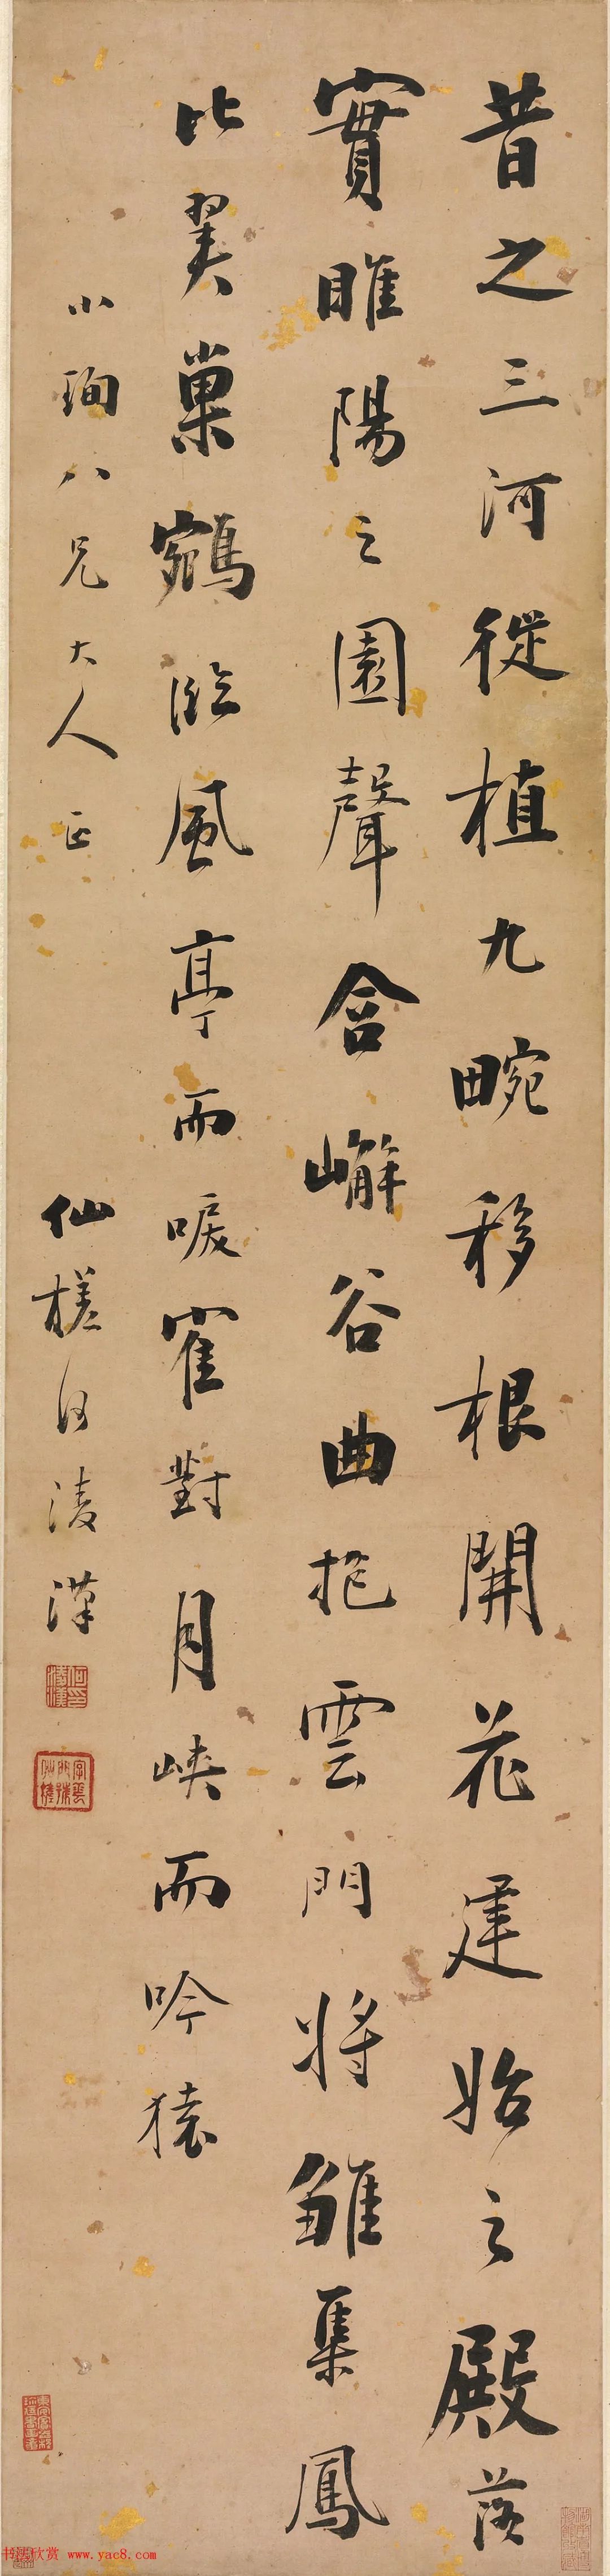 昔之三河徙植九畹移根開花建始之殿落
實睢陽之園聲含嶰谷曲抱雲門將雛集鳳
比翼巢鵷臨風亭而唳寉對月峽而吟猿
小珣八兄大人正
仙槎何淩漢
何印淩漢
字雲門號仙槎
书法欣赏 www.yac8.com